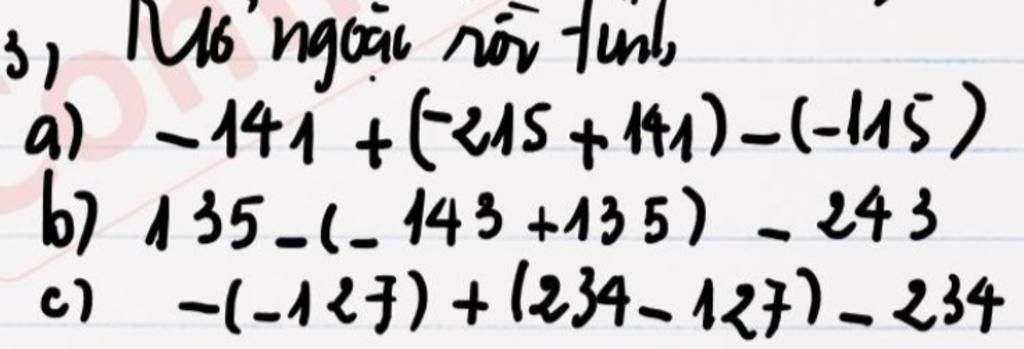 3) Mở ngoặc rồi tính
a) -141 + (-215 + 141) - (-115)
b) 135 - (- 143 + 135) - 243
c) -(-127) + (234 - 127) - 234